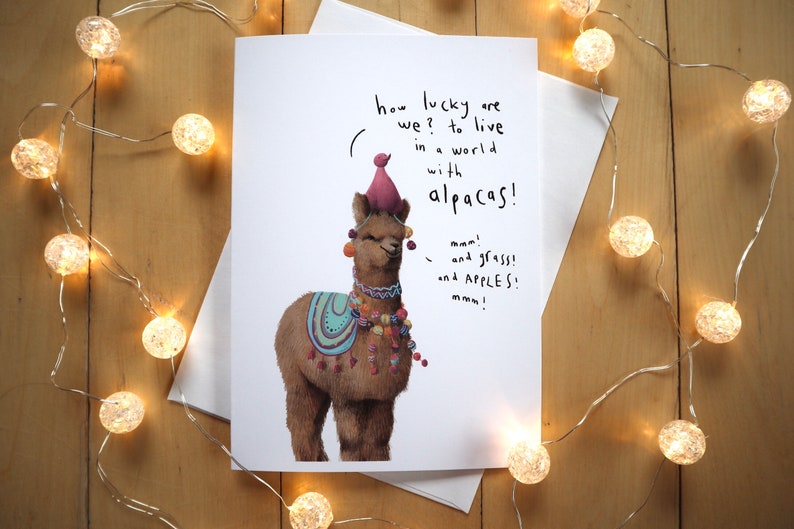 how lucky are
we? to live
in a world
with
alpacas!
mmm!
and grass!
and APPLES!
mmm!